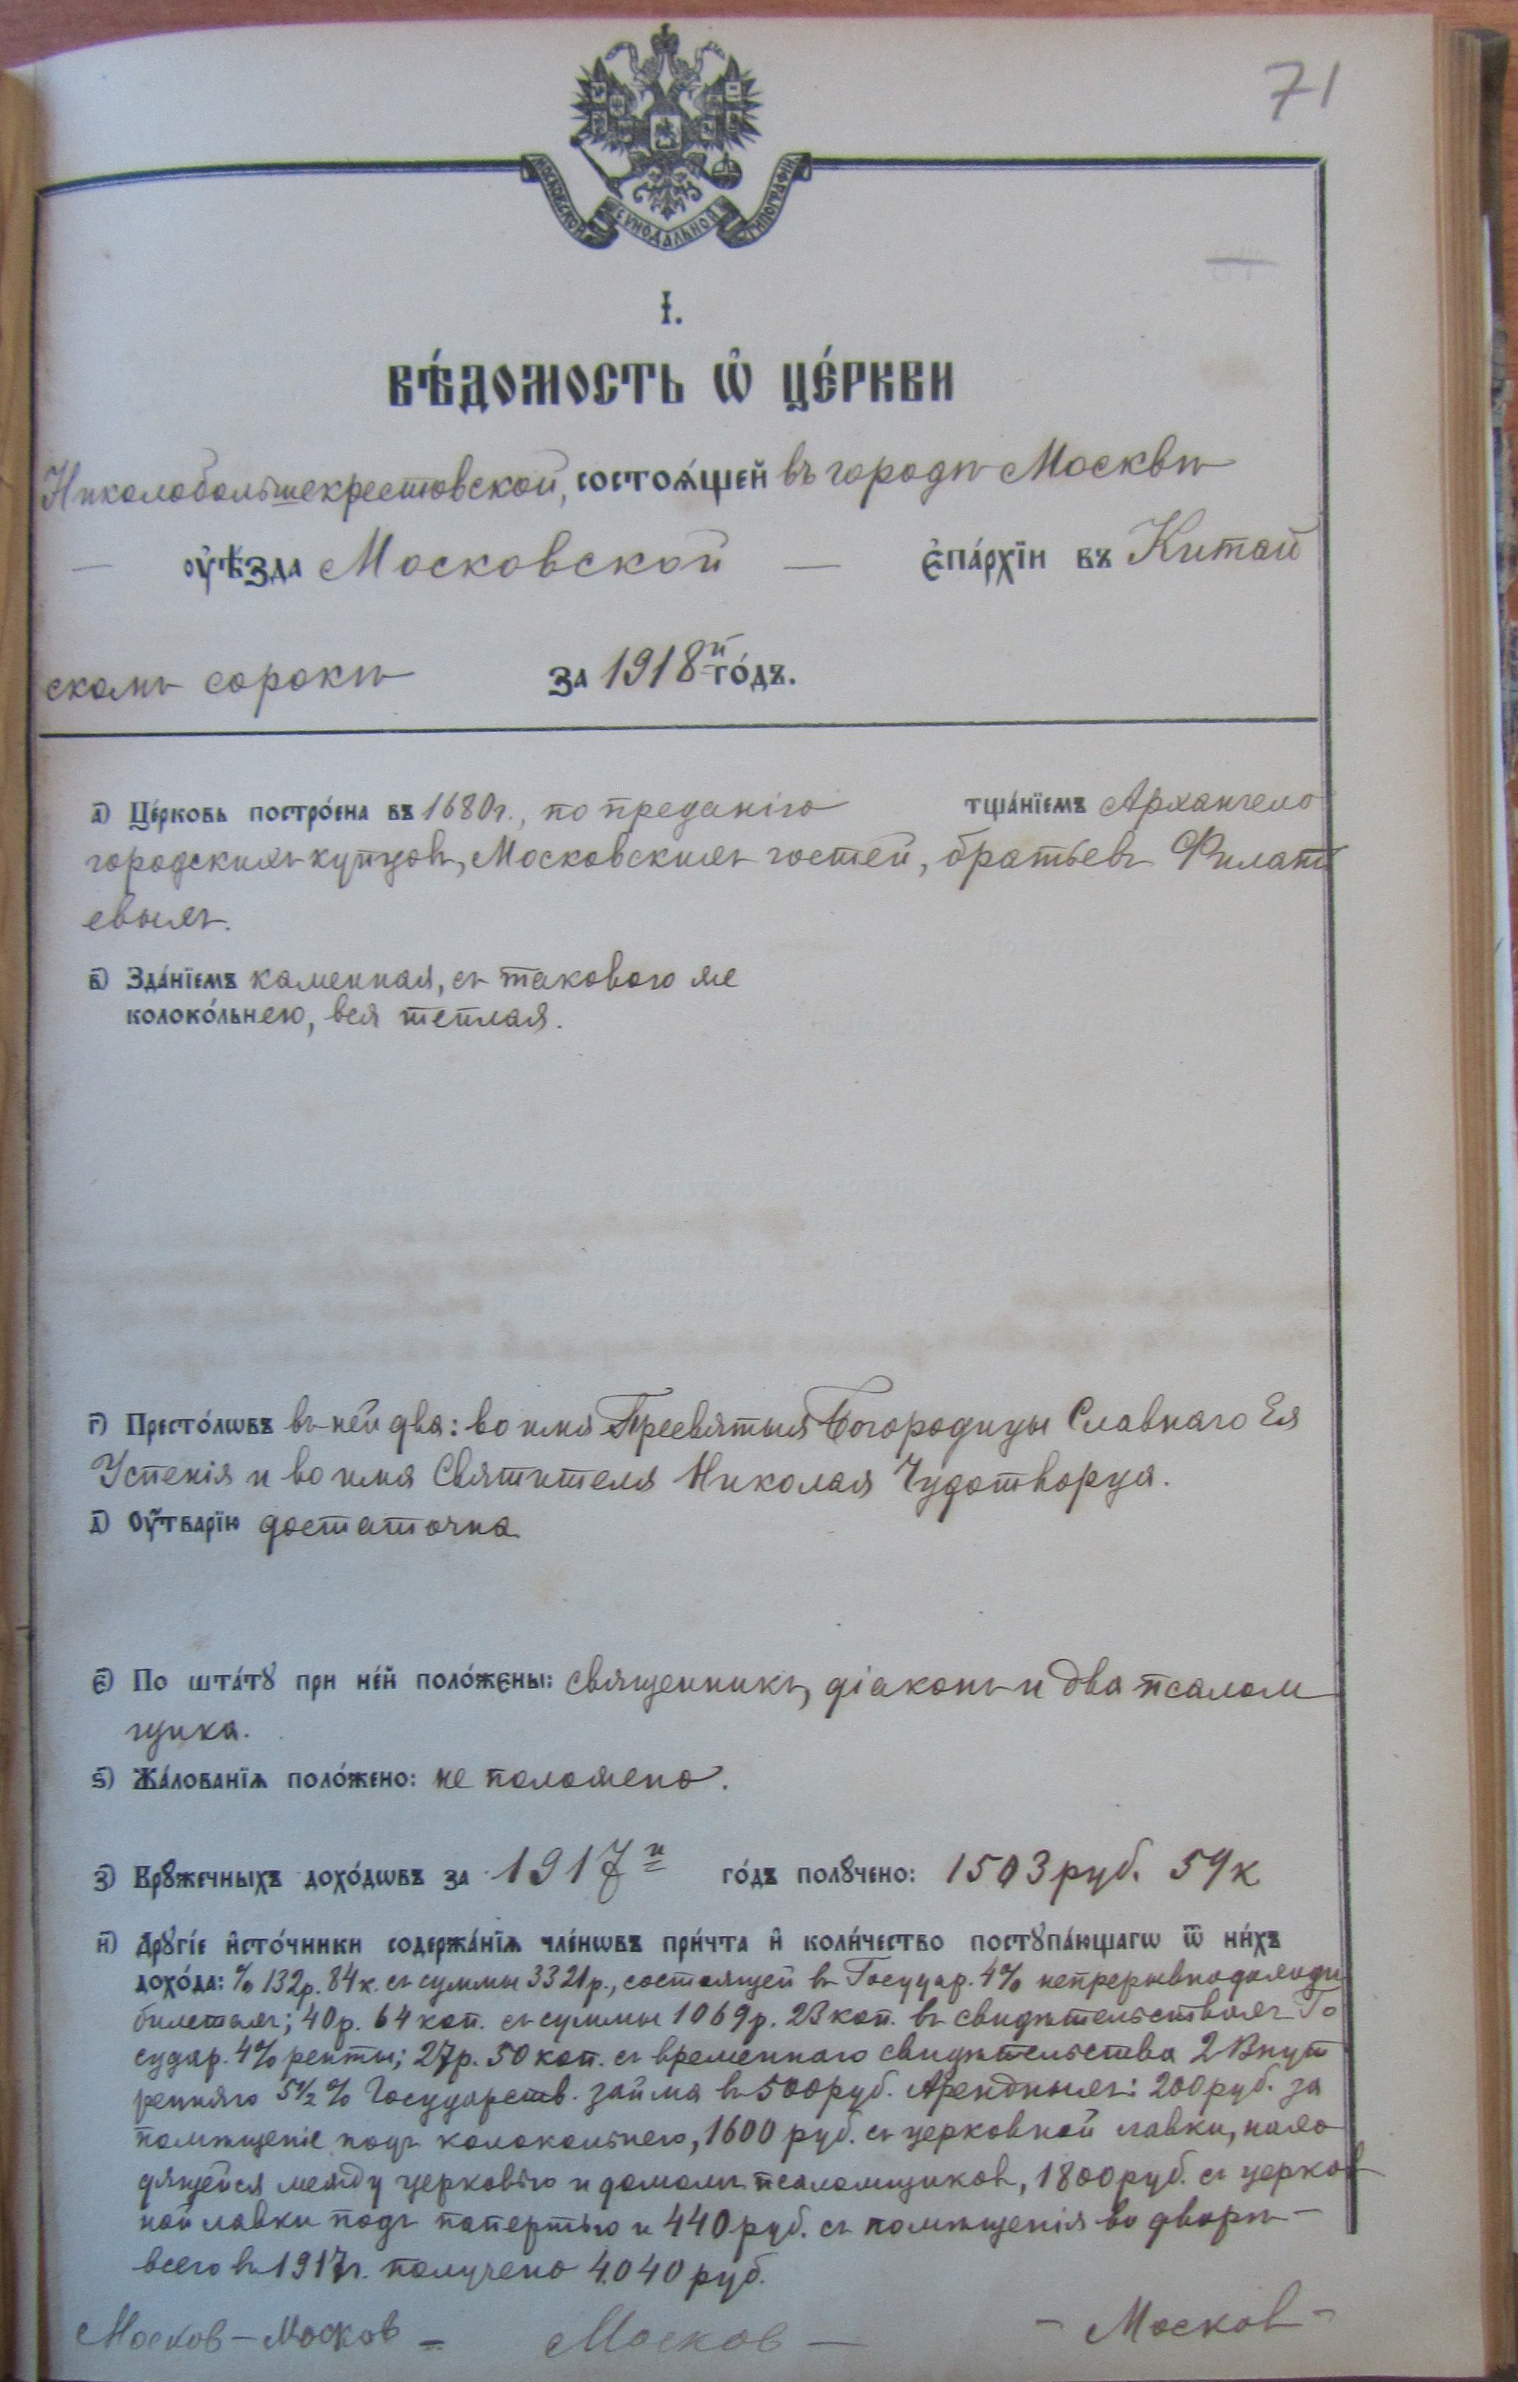 71
МОСКОВСКОЙ СѴНОДАЛЬНОЙ ТИПОГРАФІИ
І.
ВѢ́ДОМОСТЬ Ѡ҆ ЦЕ́РКВИ
Николобольшекрестовской, состоѧ́щей въ городѣ Москвѣ
— оу҆ѣ́зда Московской — є҆па́рхїи въ Китай
скомъ сорокѣ за 1918й го́дъ.
а҃) Це́рковь постро́ена въ 1680 г., по преданію тща́нїемъ Архангело
городскихъ купцовъ, Московскихъ гостей, братьевъ Филать
евыхъ.
в҃) Зда́нїемъ каменная, съ таковою же
колоко́льнею, вся теплая.
г҃) Престо́лѡвъ въ ней два: во имя Пресвятыя Богородицы Славнаго Ея
Успенія и во имя Святителя Николая Чудотворца.
д҃) Оу҆́тварїю достаточна
є҃) По шта́тꙋ при не́й поло́жены: священникъ, діаконъ и два псалом
щика.
ѕ҃) Жа́лованїѧ поло́жено: не положено.
з҃) Крꙋ́жечныхъ дохо́дѡвъ за 1917й го́дъ полꙋ́чено: 1503 руб. 59 к
и҃) Дрꙋгі́е и҆сто́чники содержа́нїѧ чле́нѡвъ при́чта и҆ коли́чество постꙋпа́ющагѡ ѿ ни́хъ
дохо́да: % 132 р. 84 к. съ суммы 3321 р., состоящей въ Государ. 4% непрерывнодоходн
билетахъ; 40 р. 64 коп. съ суммы 1069 р. 23 коп. въ свидѣтельствахъ Го
судар. 4% ренты; 27 р. 50 коп. съ временнаго свидѣтельства 2 Внут
ренняго 5½ % Государств. займа въ 500 руб. Арендныхъ: 200 руб. за
помѣщеніе подъ колокольнею, 1600 руб. съ церковной лавки, нахо
дящейся между церковію и домомъ псаломщиковъ, 1800 руб. съ церков
ной лавки подъ папертью и 440 руб. съ помѣщенія во дворѣ —
всего въ 1917 г. получено 4040 руб.
Москов — Москов — Москов — — Москов —